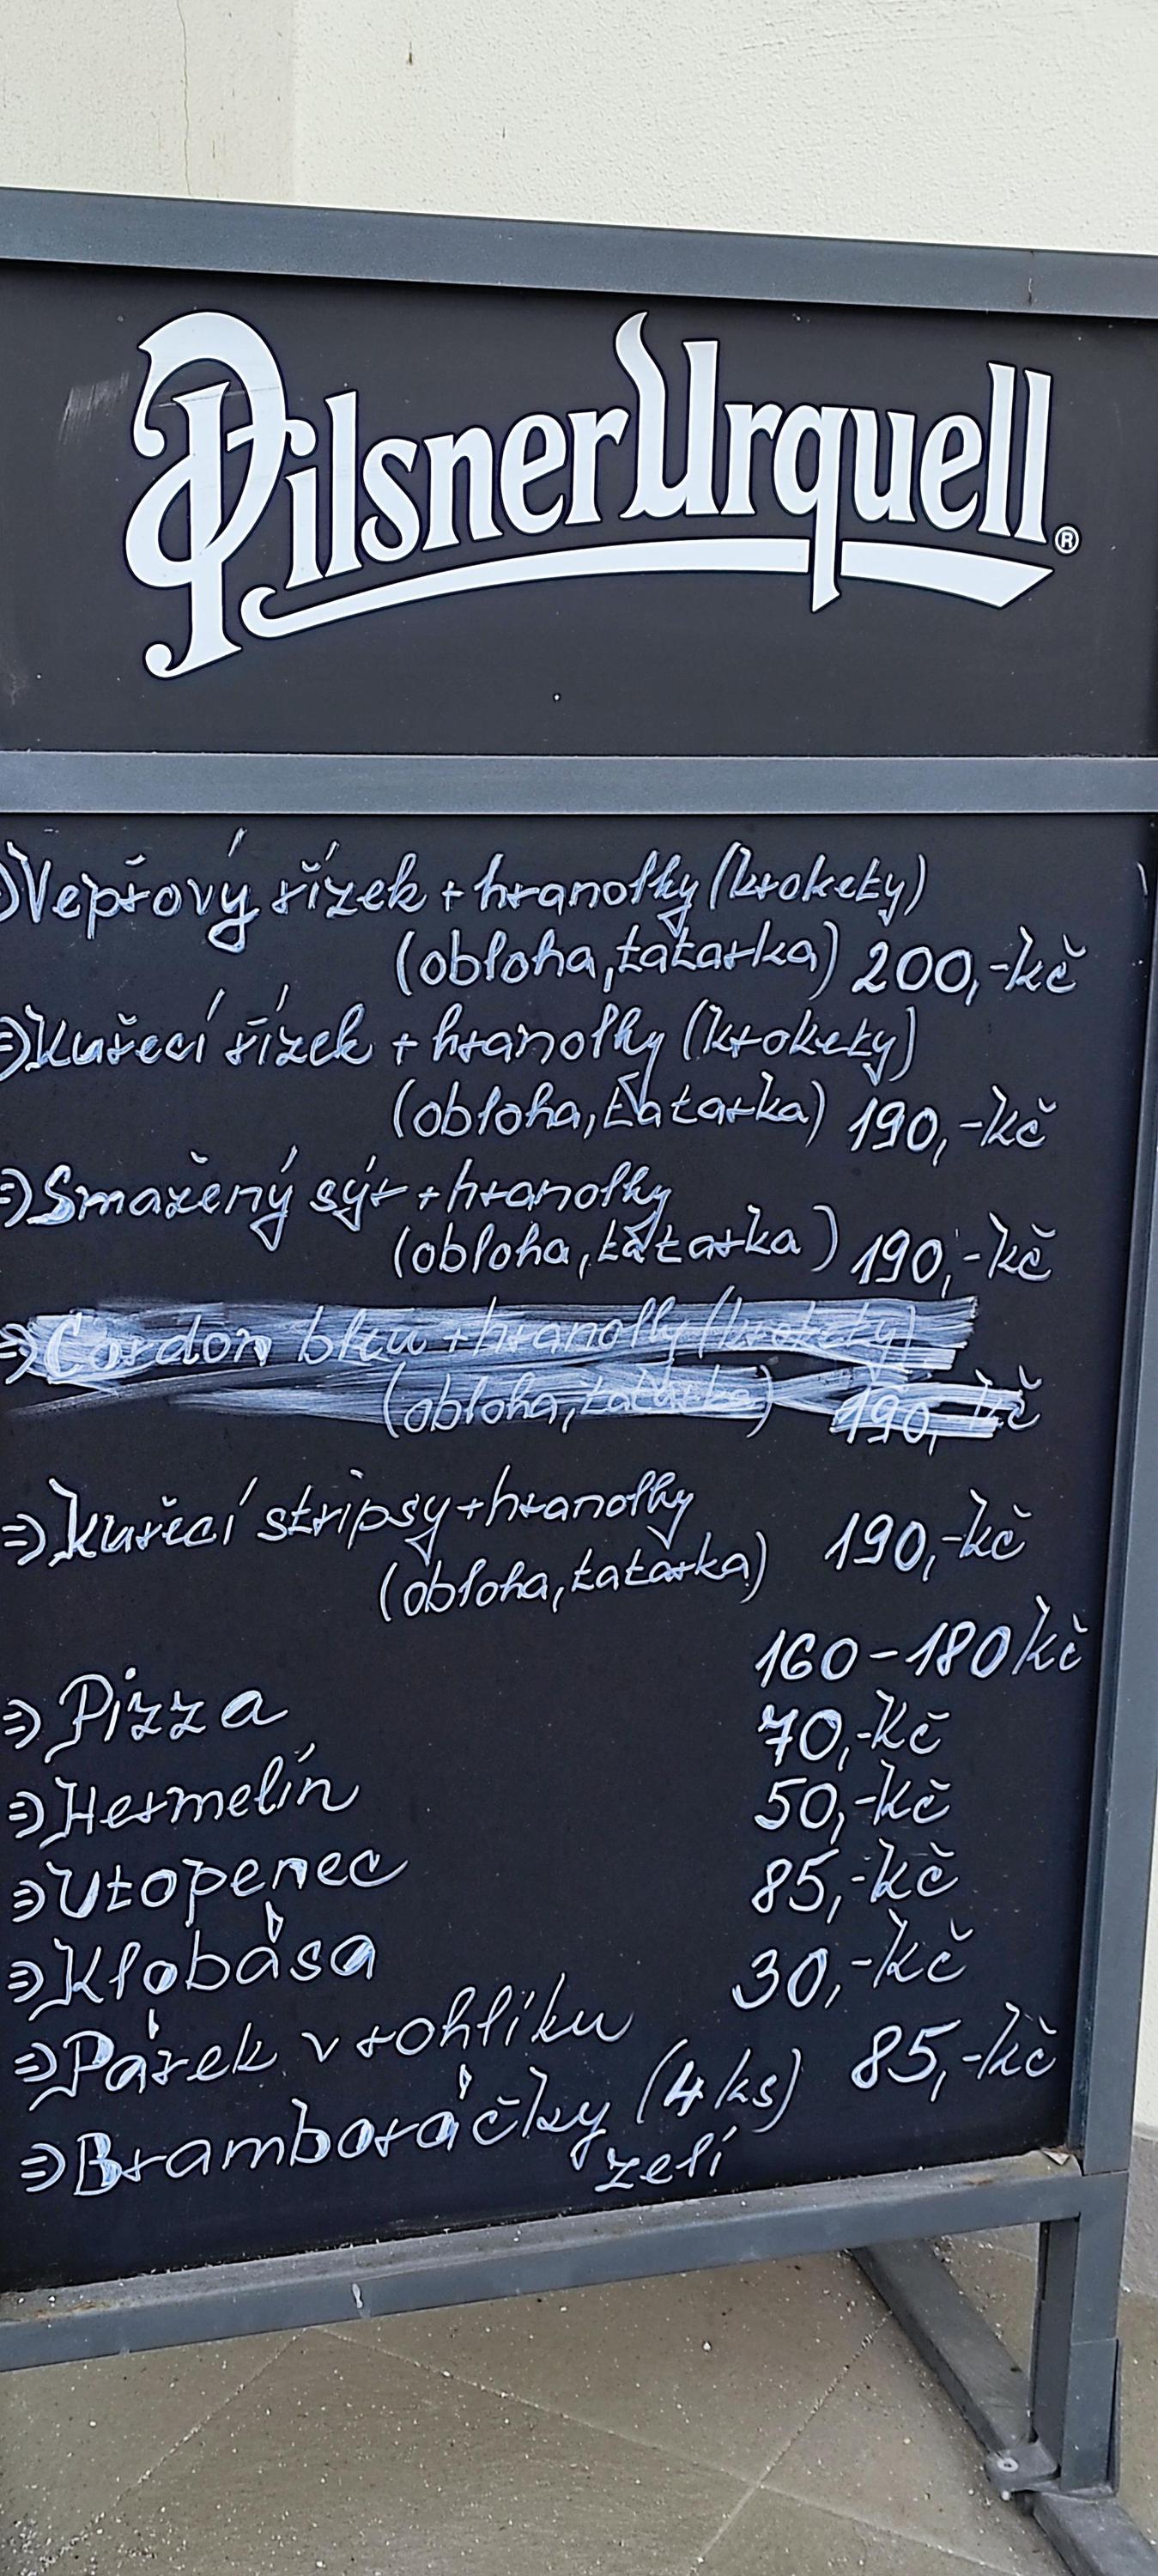 Pilsner Urquell ®
⇒ Vepřový řízek + hranolky (krokety)
(obloha, tatarka) 200,-kč
⇒ Kuřecí řízek + hranolky (krokety)
(obloha, tatarka) 190,-kč
⇒ Smažený sýr + hranolky
(obloha, tatarka) 190,-kč
⇒ Cordon bleu + hranolky (krokety)
(obloha, tatarka) 190,-kč
⇒ Kuřecí stripsy + hranolky 190,-kč
(obloha, tatarka)
⇒ Pizza 160-180kč
⇒ Hermelín 70,-kč
⇒ Utopenec 50,-kč
⇒ Klobása 85,-kč
⇒ Párek v rohlíku 30,-kč
⇒ Bramboráčky (4ks) 85,-kč
zelí